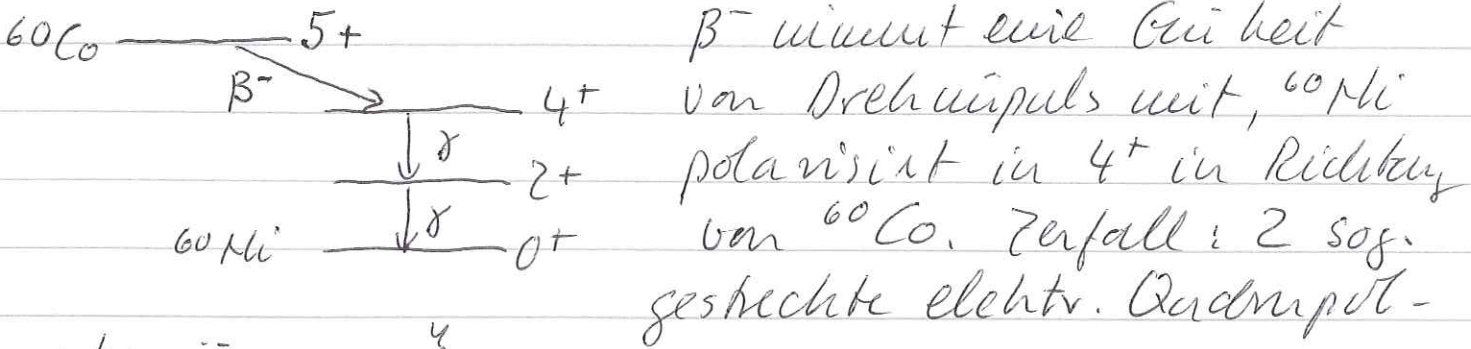 60Co 5+ β⁻ nimmt eine Einheit
β⁻ 4⁺ von Drehimpuls mit, ⁶⁰Ni
γ 2+ polarisirt in 4⁺ in Richtung
γ
60Ni 0⁺ von ⁶⁰Co. Zerfall: 2 sog.
gestreckte elektr. Quadrupol-